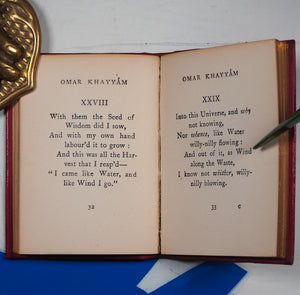 OMAR KHAYYÁM
XXVIII
With them the Seed of
Wisdom did I sow,
And with my own hand
labour'd it to grow :
And this was all the Har-
vest that I reap'd—
"I came like Water, and
like Wind I go."
32
OMAR KHAYYÁM
XXIX
Into this Universe, and why
not knowing,
Nor whence, like Water
willy-nilly flowing :
And out of it, as Wind
along the Waste,
I know not whither, willy-
nilly blowing.
33 C